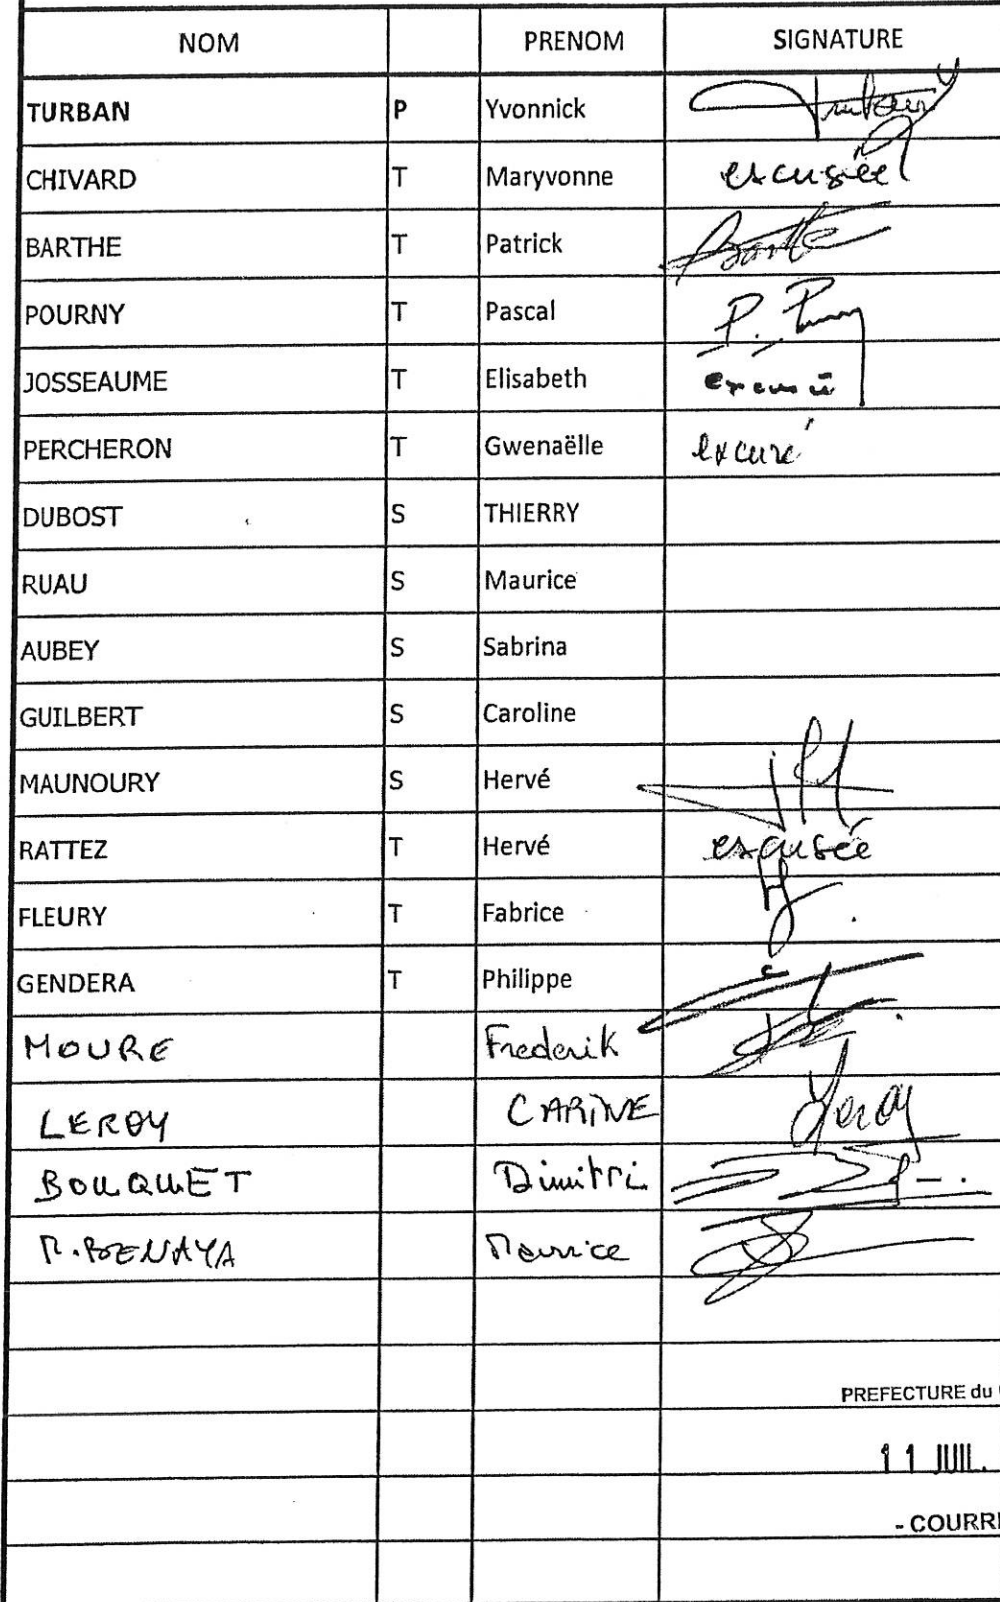 NOM PRENOM SIGNATURE
TURBAN P Yvonnick
CHIVARD T Maryvonne excusée
BARTHE T Patrick Barthe
POURNY T Pascal P.
JOSSEAUME T Elisabeth
PERCHERON T Gwenaëlle excusé
DUBOST S THIERRY
RUAU S Maurice
AUBEY S Sabrina
GUILBERT S Caroline
MAUNOURY S Hervé
RATTEZ T Hervé excusée
FLEURY T Fabrice
GENDERA T Philippe
MOURE Frederik
LEROY CARINE Leroy
BOUQUET Dimitri
M.BENAYA Maurice
PREFECTURE du
11 JUIL.
- COURRI